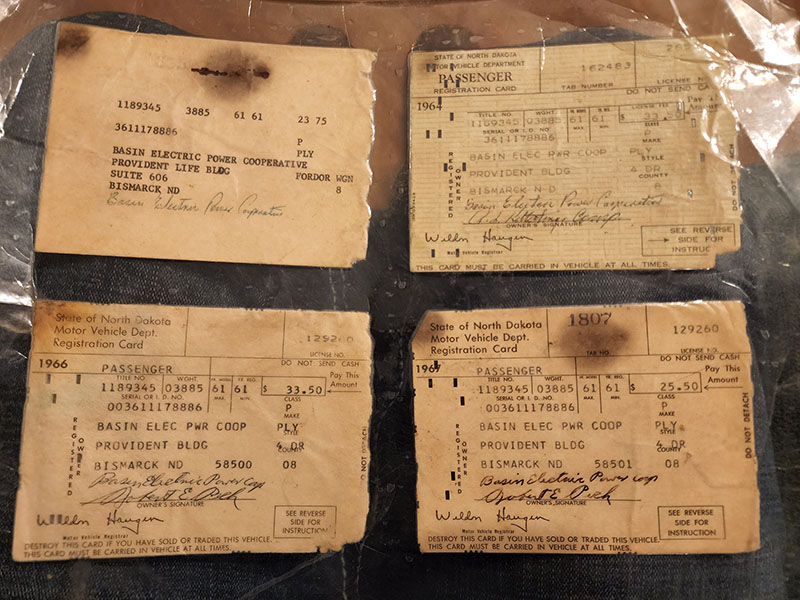 1189345 3885 61 61 23 75
3611178886
P
BASIN ELECTRIC POWER COOPERATIVE PLY
PROVIDENT LIFE BLDG FORDOR WGN
SUITE 606 8
BISMARCK ND
Basin Electric Power Cooperative
STATE OF NORTH DAKOTA
MOTOR VEHICLE DEPARTMENT
PASSENGER
REGISTRATION CARD
162483
TAB NUMBER
LICENSE N
DO NOT SEND CA
1964
Pay
Amount
TITLE NO. WGHT.
1189345 03885 61 61 $ 33.50
SERIAL OR I.D. NO. CLASS
3611178886 P
MAKE
BASIN ELEC PWR COOP PLY
STYLE
PROVIDENT BLDG 4 DR
COUNTY
BISMARCK N D 8
REGISTERED OWNER
Basin Electric Power Cooperative
OWNER'S SIGNATURE
Motor Vehicle Registrar
SEE REVERSE
SIDE FOR
INSTRUC
DO NOT DETACH
THIS CARD MUST BE CARRIED IN VEHICLE AT ALL TIMES.
State of North Dakota
Motor Vehicle Dept.
Registration Card
129260
LICENSE NO.
DO NOT SEND CASH
1966 PASSENGER
Pay This
Amount
TITLE NO. WGHT. YR. MODEL YR. REG.
1189345 03885 61 61 $ 33.50
SERIAL OR I. D. NO. MAX. MIN. CLASS
003611178886 P
MAKE
BASIN ELEC PWR COOP PLY
STYLE
PROVIDENT BLDG 4 DR
COUNTY
BISMARCK ND 58500 08
REGISTERED OWNER
Basin Electric Power Coop
Robert E. Pich
OWNER'S SIGNATURE
Motor Vehicle Registrar
SEE REVERSE
SIDE FOR
INSTRUCTION
DO NOT DETACH
DESTROY THIS CARD IF YOU HAVE SOLD OR TRADED THIS VEHICLE.
THIS CARD MUST BE CARRIED IN VEHICLE AT ALL TIMES.
State of North Dakota
Motor Vehicle Dept.
Registration Card
1807
TAB NO.
129260
LICENSE NO.
DO NOT SEND CASH
1967 PASSENGER
Pay This
Amount
TITLE NO. WGHT. YR. MODEL YR. REG.
1189345 03885 61 61 $ 25.50
SERIAL OR I. D. NO. MAX. MIN. CLASS
003611178886 P
MAKE
BASIN ELEC PWR COOP PLY
STYLE
PROVIDENT BLDG 4 DR
COUNTY
BISMARCK ND 58501 08
REGISTERED OWNER
Basin Electric Power Coop
Robert E. Pich
OWNER'S SIGNATURE
Motor Vehicle Registrar
SEE REVERSE
SIDE FOR
INSTRUCTION
DO NOT DETACH
DESTROY THIS CARD IF YOU HAVE SOLD OR TRADED THIS VEHICLE.
THIS CARD MUST BE CARRIED IN VEHICLE AT ALL TIMES.